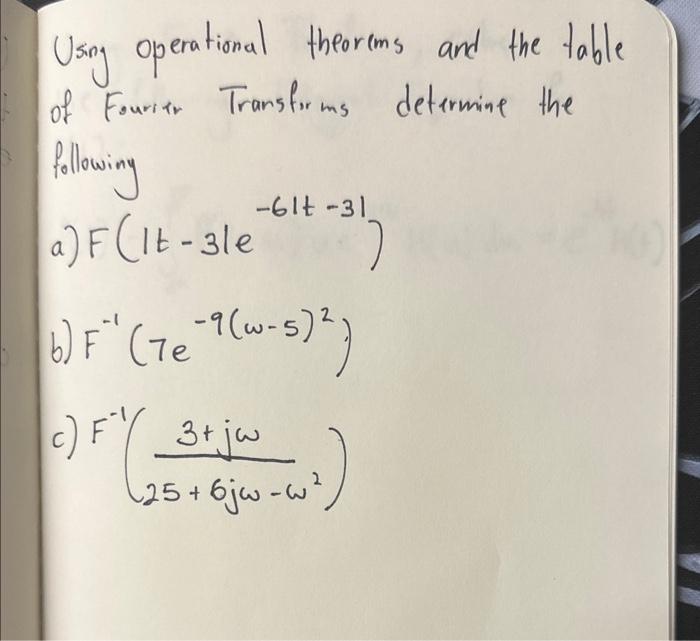 Using operational theorems and the table
of Fourier Transforms determine the
following
a) F(|t-3|e^{-6|t-3|})
b) F^{-1}(7e^{-9(ω-5)^2})
c) F^{-1}((3+jω)/(25+6jω-ω^2))